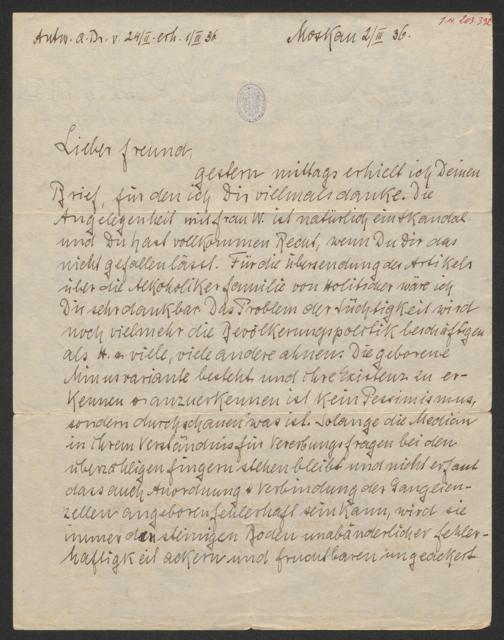 J.N. 203.392
Antw. a. Br. v. 24/II. erh. 1/III 36
Moskau 2/III 36.
Lieber Freund,
gestern mittags erhielt ich Deinen
Brief, für den ich Dir villmals danke. Die
Angelegenheit mit Frau W. ist natürlich ein Skandal
und Du hast vollkommen Recht, wenn Du Dir das
nicht gefallen lässt. Für die Übersendung des Artikels
über die Alkoholikerfamilie von Holitscher wäre ich
Dir sehr dankbar. Das Problem der Tüchtigkeit wird
noch vielmehr die Bevölkerungspolitik beschäftigen
als H. u. viele, viele andere ahnen. Die geborene
Minusvariante besteht und ihre Existenz zu er-
kennen & anzuerkennen ist kein Pessimismus,
sondern durchschauen was ist. Solange die Medizin
in ihrem Verständnis für Vererbungsfragen bei den
überzähligen Fingern stehen bleibt und nicht erfasst
dass auch Anordnung & Verbindung der Ganglien-
zellen angeboren fehlerhaft sein kann, wird sie
immer den steinigen Boden unabänderlicher Fehler-
haftigkeit ackern und fruchtbaren ungeackert